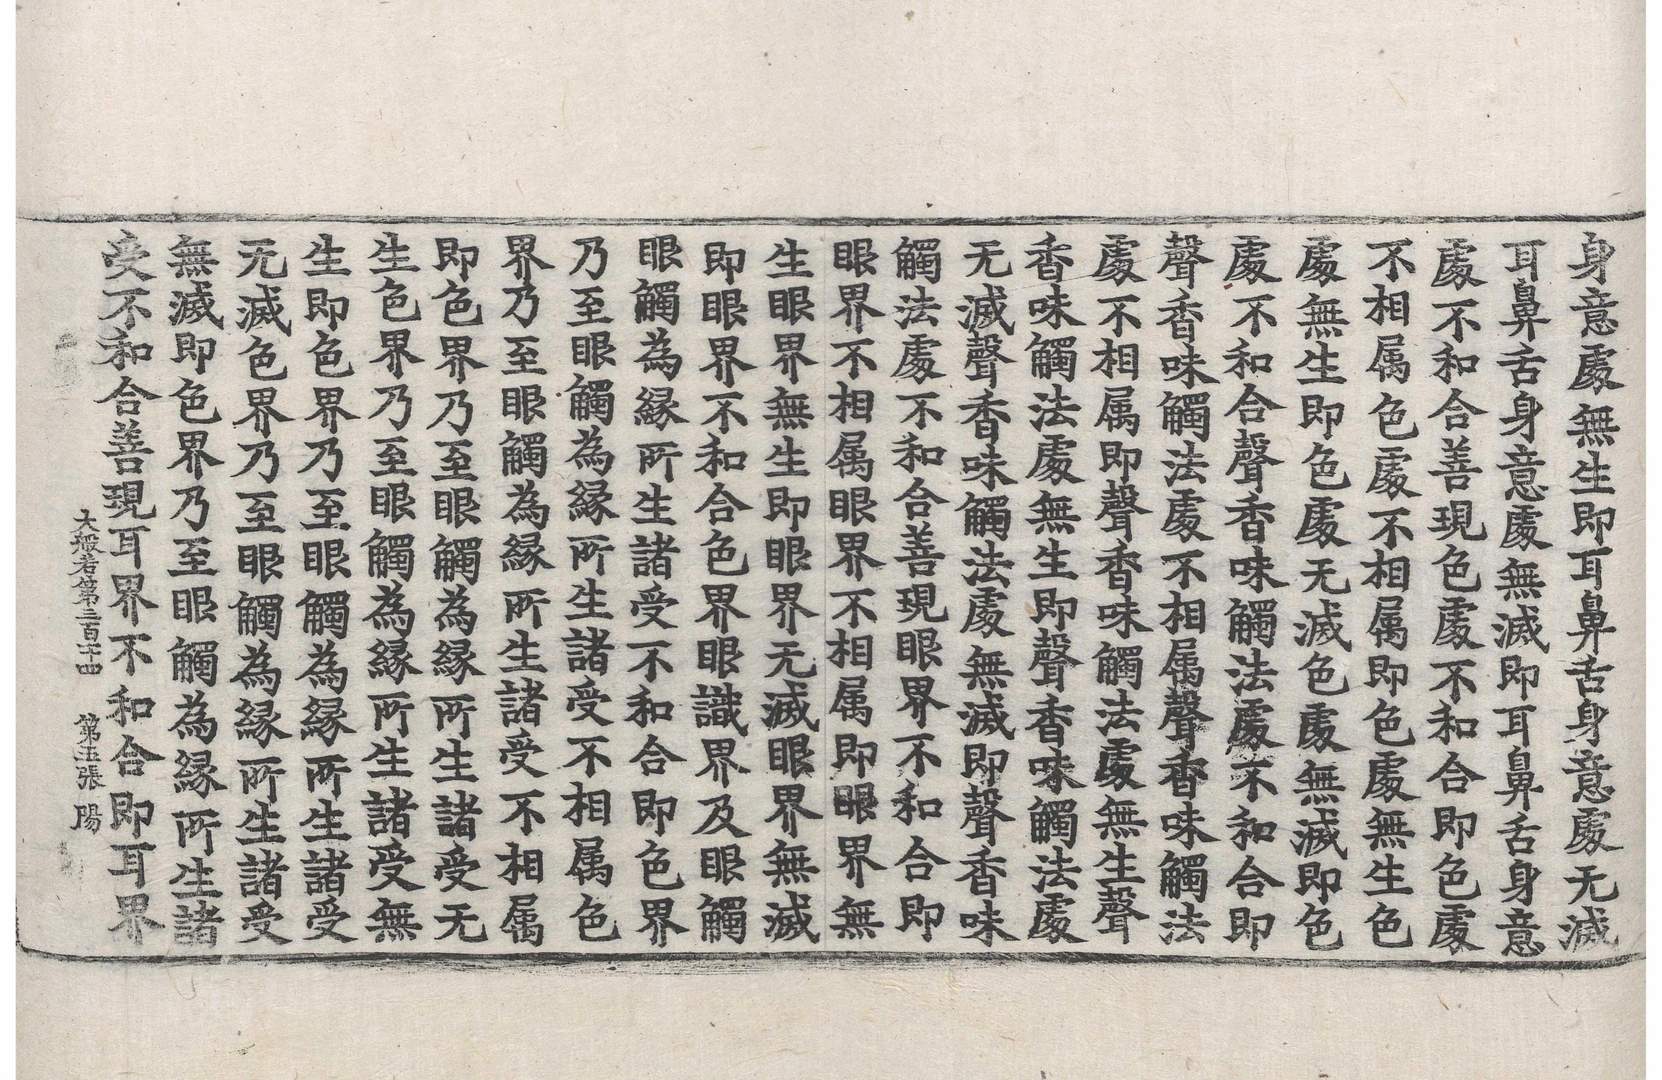 身意處無生即耳鼻舌身意處无滅
耳鼻舌身意處無滅即耳鼻舌身意
處不和合善現色處不和合即色處
不相属色處不相属即色處無生色
處無生即色處无滅色處無滅即色
處不和合聲香味觸法處不和合即
聲香味觸法處不相属聲香味觸法
處不相属即聲香味觸法處無生聲
香味觸法處無生即聲香味觸法處
无滅聲香味觸法處無滅即聲香味
觸法處不和合善現眼界不和合即
眼界不相属眼界不相属即眼界無
生眼界無生即眼界无滅眼界無滅
即眼界不和合色界眼識界及眼觸
眼觸為縁所生諸受不和合即色界
乃至眼觸為縁所生諸受不相属色
界乃至眼觸為縁所生諸受不相属
即色界乃至眼觸為縁所生諸受无
生色界乃至眼觸為縁所生諸受無
生即色界乃至眼觸為縁所生諸受
无滅色界乃至眼觸為縁所生諸受
無滅即色界乃至眼觸為縁所生諸
受不和合善現耳界不和合即耳界
大般若第三百 四 第五張 陽